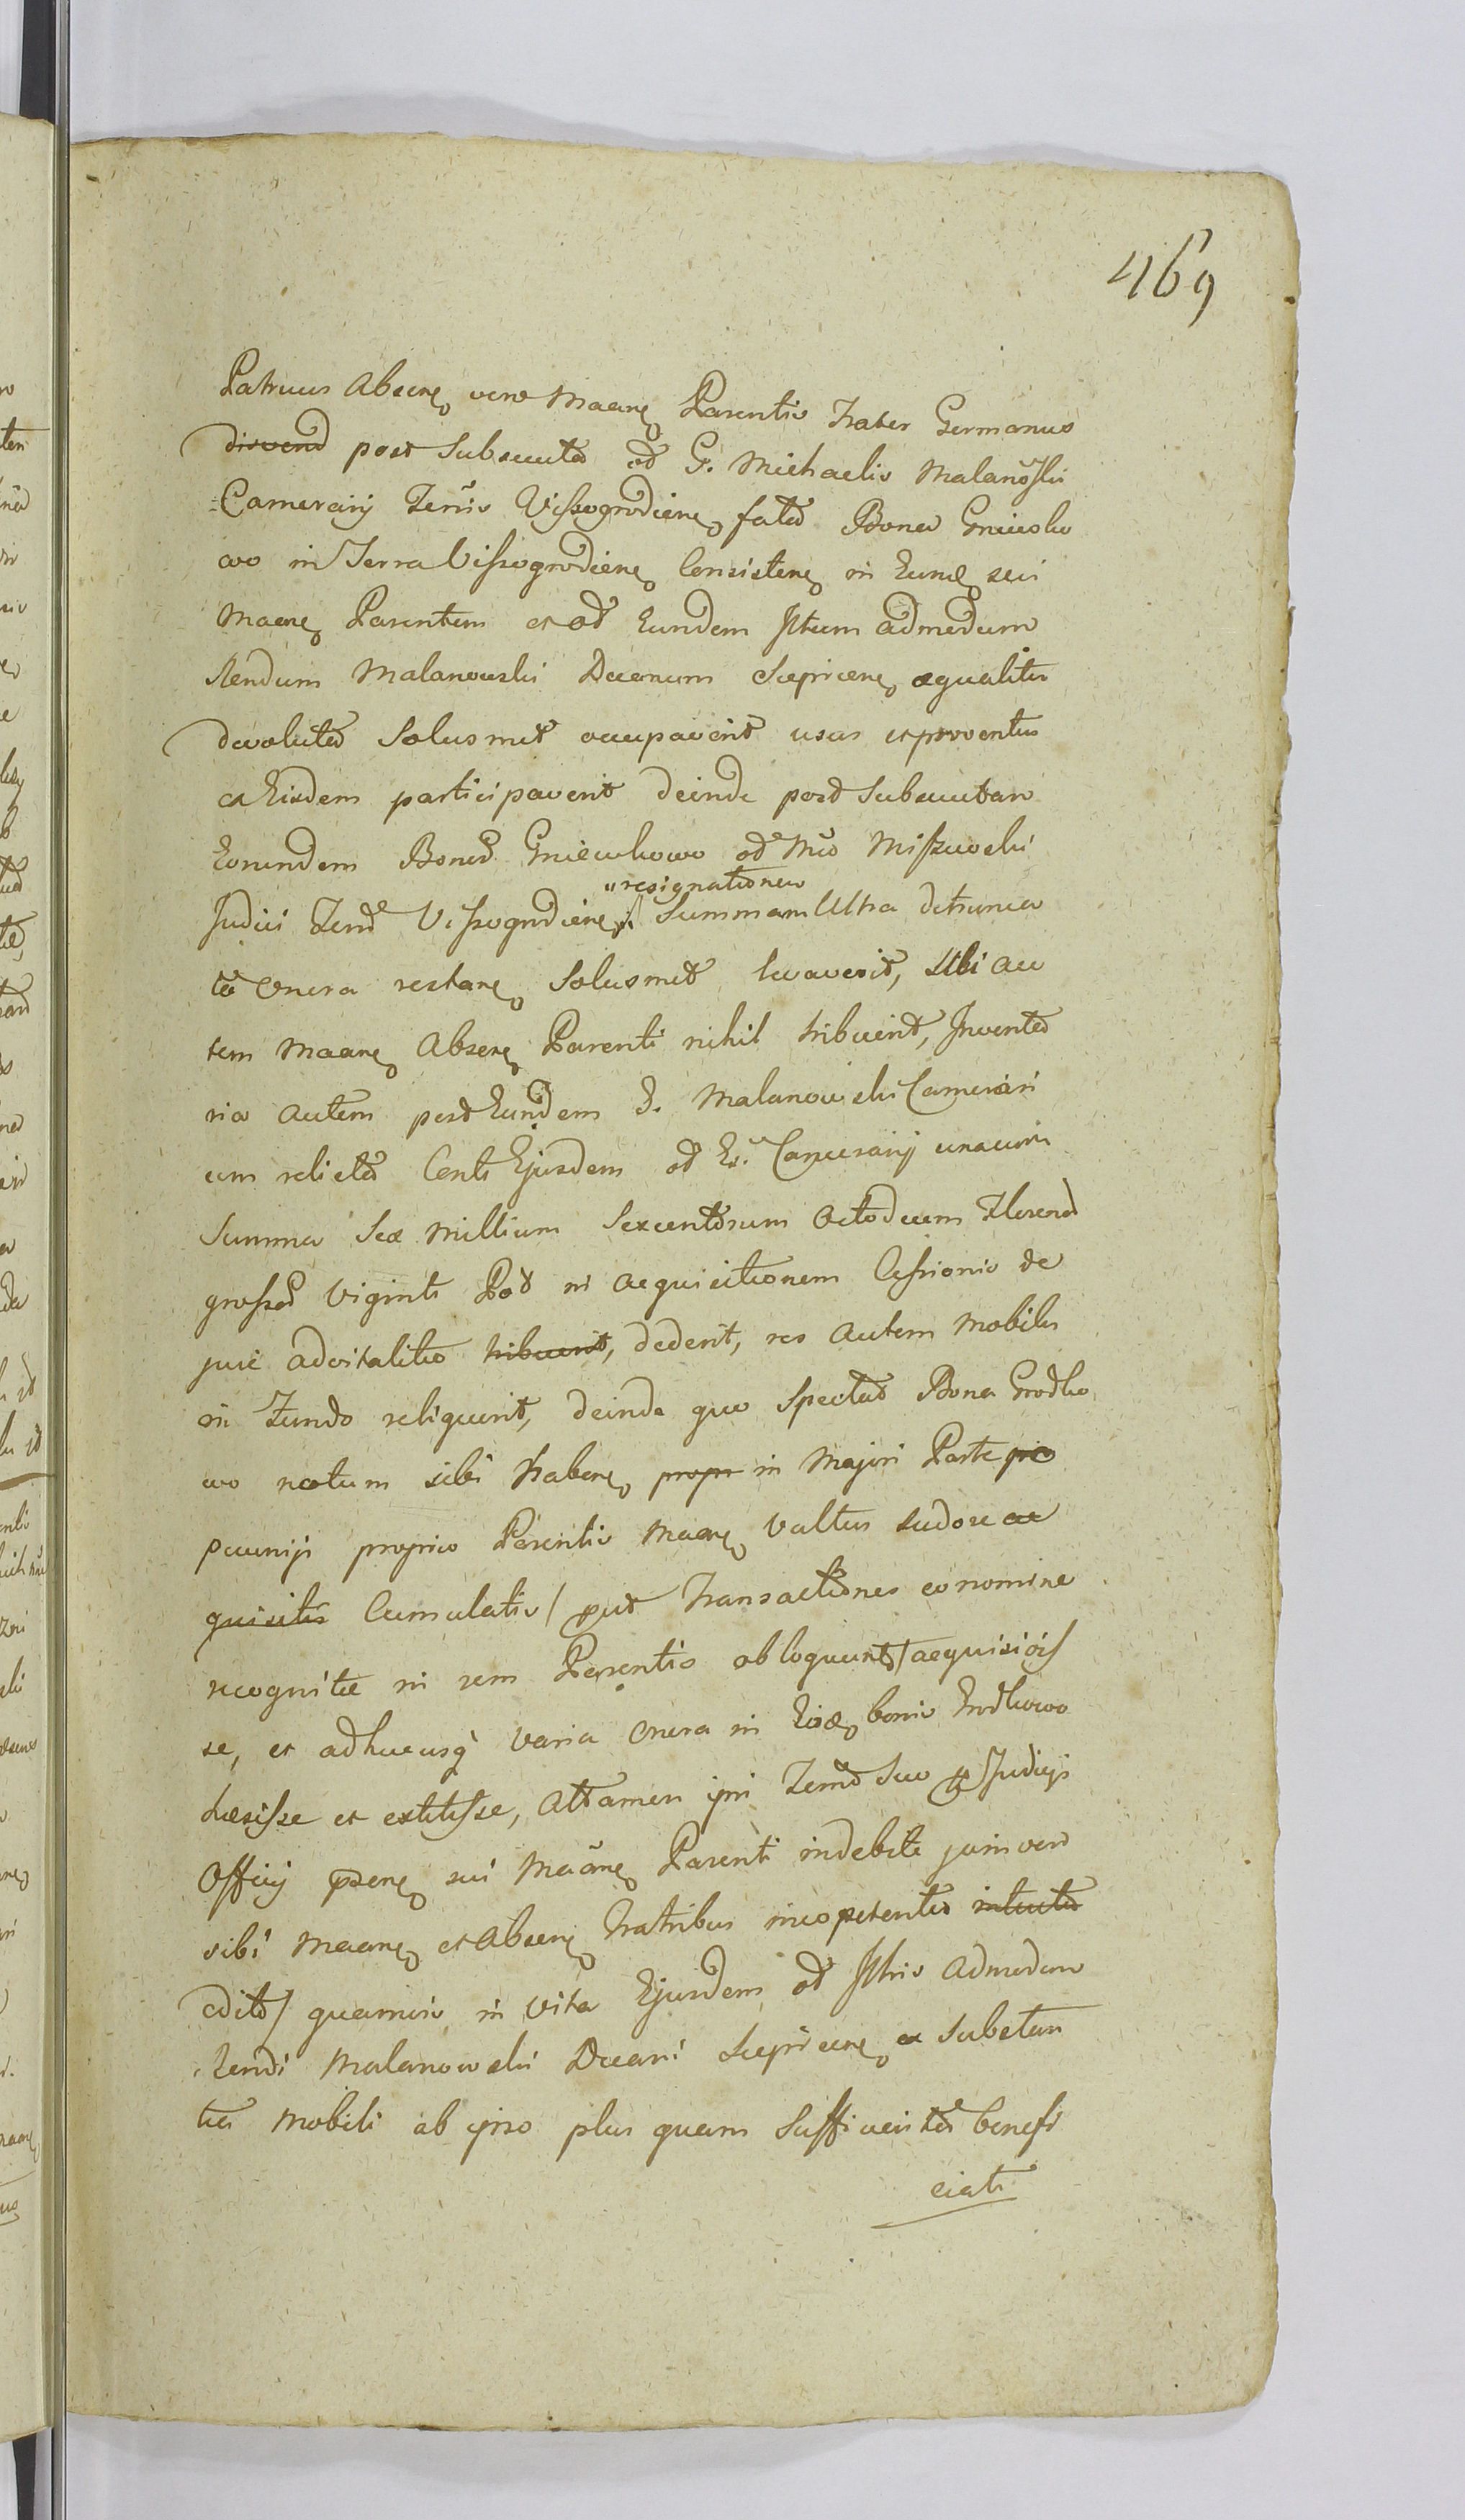 469
Patruus Absene vero Maane Parentis Frater Germanus
discend post Subsecuta od G. Michaelis Malanoski
Camerarij Terris Vissogrodiene fata Bona Gniewko
wo in Terra Vissogrodiene Consistene in Eund seu
Maane Parentem et ad Eundem Istum admodum
Rendum Malanowski Decanum Sieprcene aequaliter
devoluta Solusmet occupaverit usus et proventus
ex Eisdem participaverit deinde post Subsecutam
Eorundem Bonor Gniewkowo od Mco Miszewski
"resignationem
Judici Terrae Vissogrodiene Summam Ultra detrunca
ta onera restane Solusmet levaverit, Ubi au
tem Maane Absene Parenti nihil tribuerit, Inventa
ria autem post Eundem G. Malanowski Camerari
um relicta Centi Ejusdem od G. Camerarij unacum
Summa Sex Millium Sexcentorum Octodecem Floreno
grossor Viginti Pol in acquisitionem Cessionis de
jure advitalitio tribuerit, dederit, res autem Mobiles
in Fundo reliquerit, deinde quo Spectat Bona Grodko
wo notum sibi habene propr in Majori Parte pro
pecunijs proprio Parentis Maane Vultus sudore ac
quisitis Cumulatis / put Transactiones eo nomine
recognitae in rem Parentis obloquunt / acquisiois
se, et adhucusq varia onera in Eisd bonis Grodkowo
haesisse et extitisse, Attamen ipsi Terrae Suo Judicij
Officij psene sui Maane Parenti indebite jam vero
sibi Maane et Absene Fratribus incopetenter intuita
edito / quamvis in vita Ejusdem od Istris Admodum
Rendi Malanowski Decani Sieprcene ex Substan
tia Mobili ab ipso plus quam Sufficienter benefi
ciati